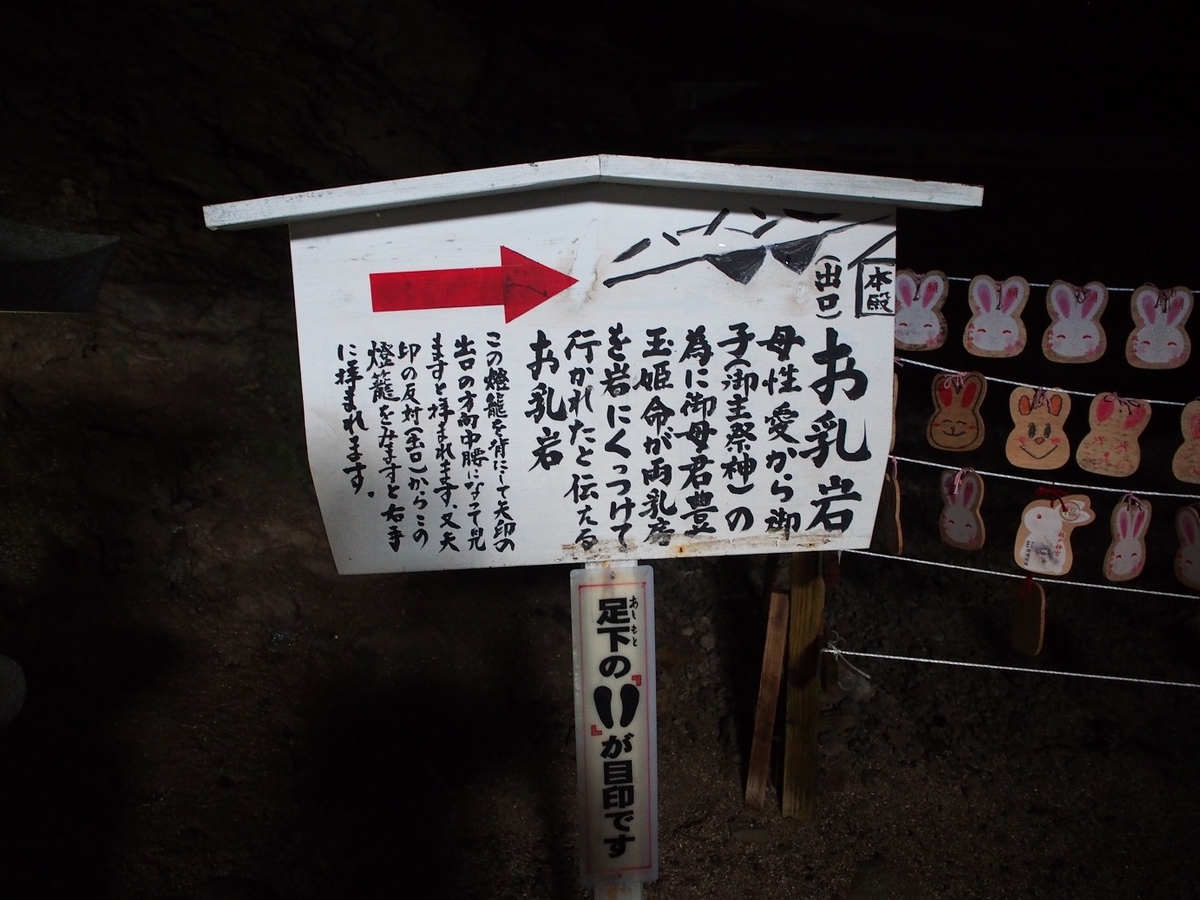 本殿
(出口)
お乳岩
母性愛から御
子(御主祭神)の
為に御母君豊
玉姫命が両乳房
を岩にくっつけて
行かれたと伝たる
お乳岩
この燈籠を背にして矢印の
出口の方向中腰になって見
ますと拝まれます、又矢
印の反対(出口)からこの
燈籠をみますと右手
に拝まれます。
あしもと
足下の『』が目印です